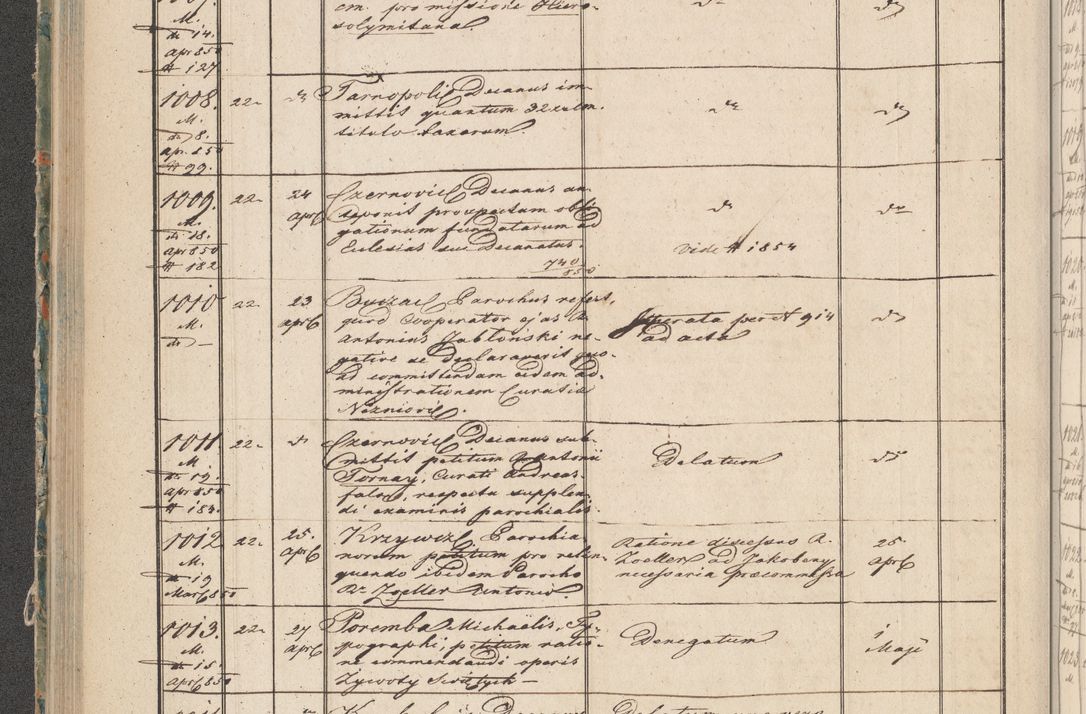 M.
dto 14.
Apr 850
# 127
em. pro missione Hiero-
solymitana.
1008.
M.
dto 8.
apr. 850
# 99.
22.
Tarnopolis Decanus im-
mittit quantum 32 xulm.
titulo taxarum
1009.
M.
dto 18.
apr 850
# 182
22.
24
apr
Czernovic Decanus an-
teponit prospectum obli-
gationum fundatarum ad
Eclesias sui Decanatus.
740
850
Vide # 1854
1010
M.
22.
23
apr
Buczac Parochus refert,
quod Cooperator ejus A.
Antonius Jabłoński ne-
gative se declaraverit quo-
ad committendam eidem ad-
ministrationem Curatiæ
Nezniovic.
per # 914
ad acta
1011
M
dto 19.
apr 850
# 183.
22.
Czernovic Decanus sub-
mittit petitum Antonii
Tornay, Curati Andreas-
falve, respectu supplen-
di examinis parochialis.
Delatum
1012
M.
dto 19
Mart 850
22.
25.
apr
Krzywcz Parochia-
norum petitum pro relin-
quendo ibidem Parocho
Zoeller Antonio
Ratione discessus R.
Zoeller ad Jakobeny
necessaria præcommissa
25
apr
1013.
M.
dto 15.
Apr 850
22.
27
apr
Poremba Michaelis, Ty-
pographi, petitum ratio-
ne commendandi operis
Żywoty Swiętych —
Denegatum
1
Maji